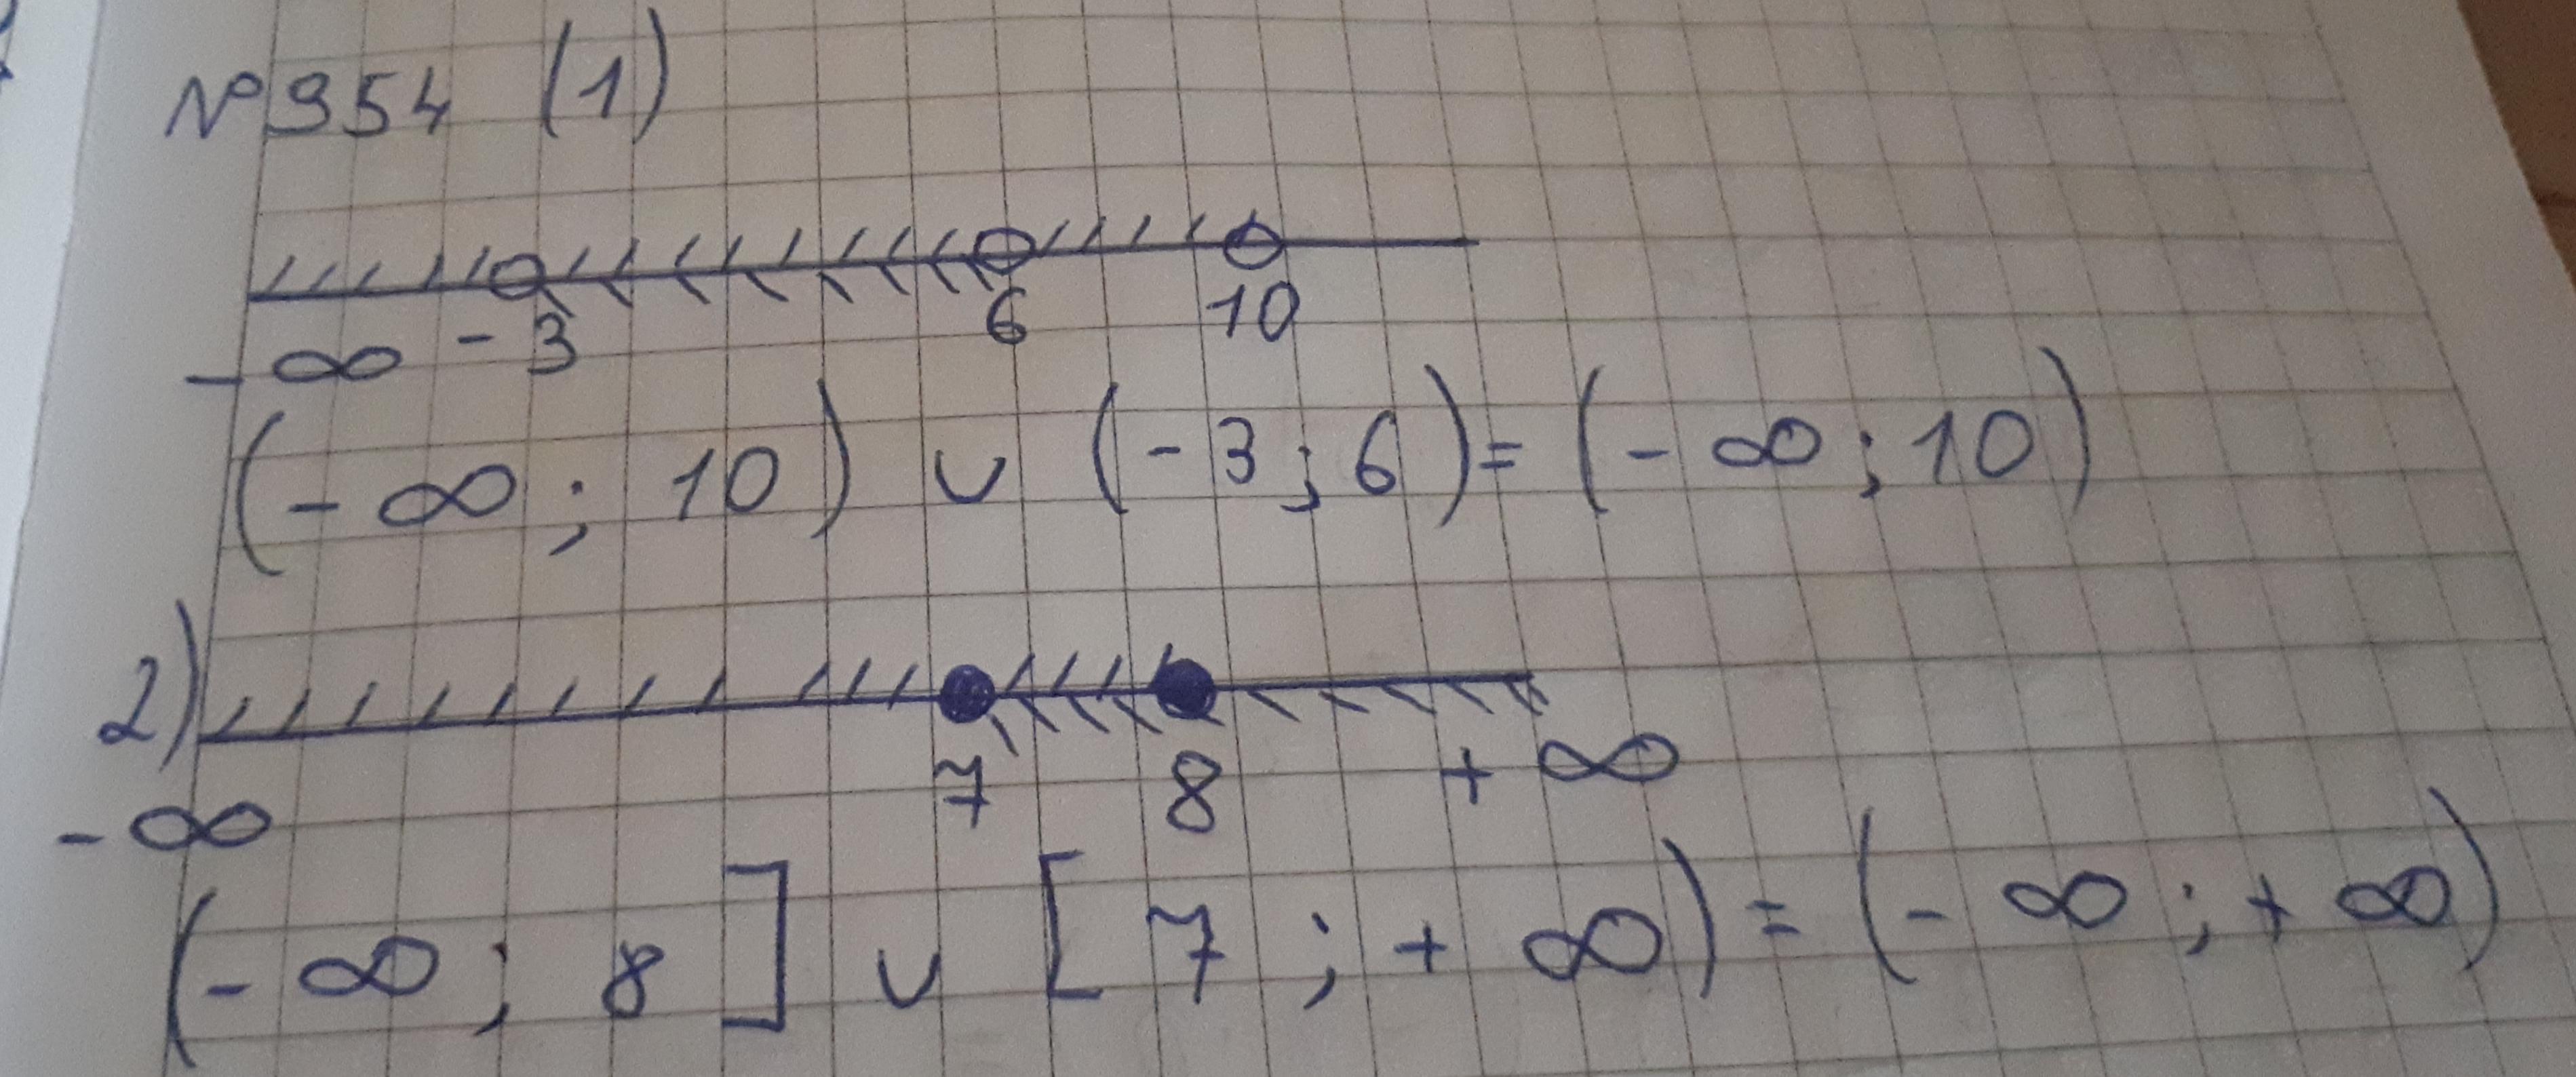 №954 (1)
-∞ -3 6 10
(-∞; 10) ∪ (-3; 6) = (-∞; 10)
2)
-∞ 7 8 +∞
(-∞; 8] ∪ [7; +∞) = (-∞; +∞)